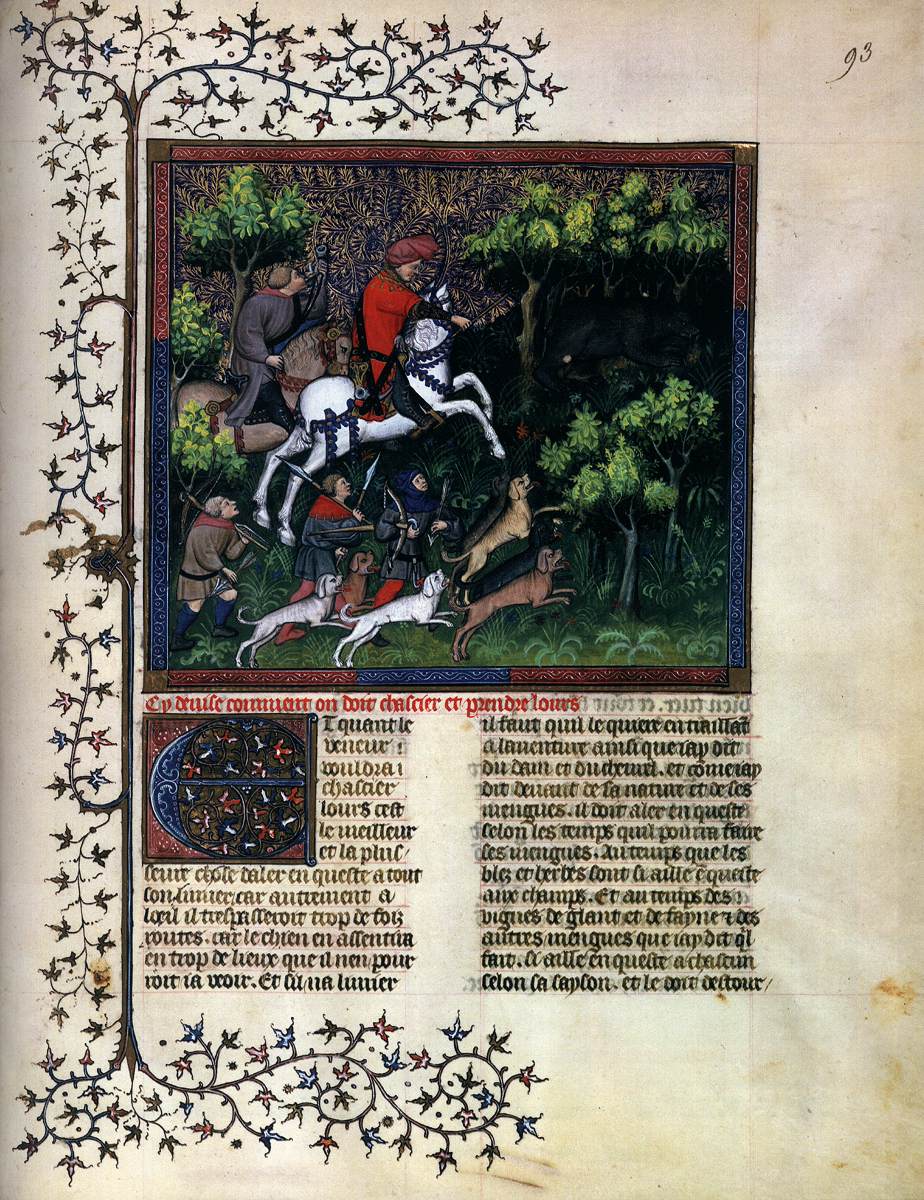 93
Cy deuise comment on doit chascier et prendre lours
Et quant le
veneur
vouldra
chascier
lours cest
le meilleur
et la plus
seure chose daler en queste a tout
son limier car autrement a
lœil il trespasseroit trop de foiz
routes. car le chien en assentira
en trop de lieux que il nen pour
roit ia veoir. Et sil na limier
il faut quil le quiere en traillant
a lauenture ainsi que iay dit
du dain et du cheurel. et come iay
dit deuant de sa nature et de ses
mengues. il doit aler en queste
selon les temps quil pourra faire
ses mengues. Au temps que les
blez et herbes sont si aille e queste
aux champs. Et au temps des
vignes de glant et de fayne et des
autres mengues que iay dit ql
fait. si aille en queste a chascun
selon sa sayson. et le doit destour